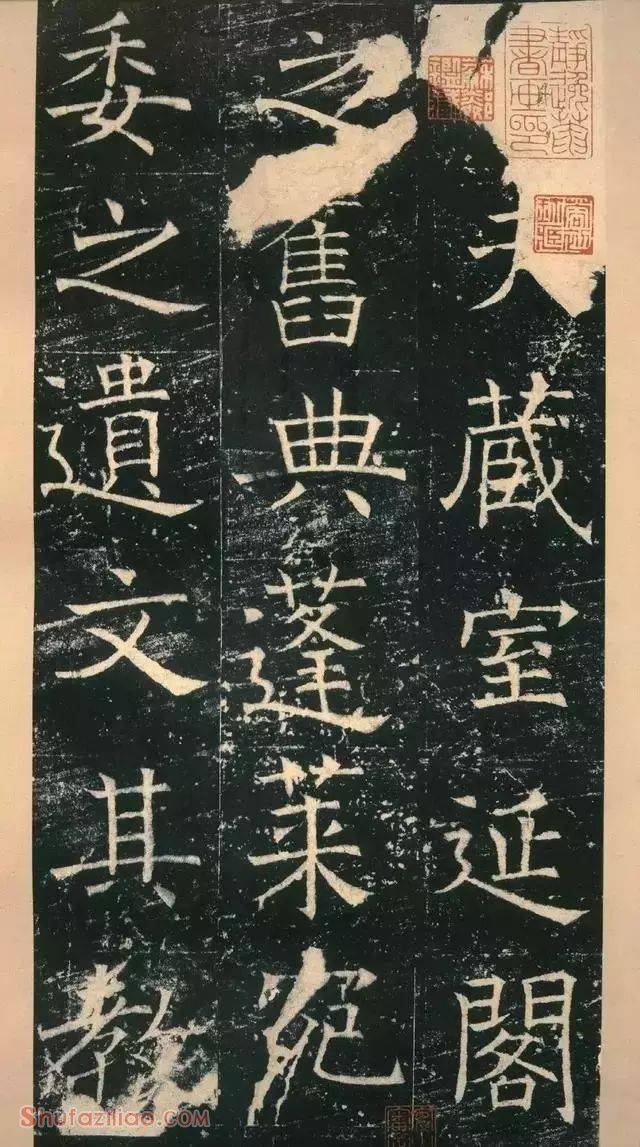 藏室延閣
之舊典蓬萊宛
委之遺文其教
Shufaziliao.com